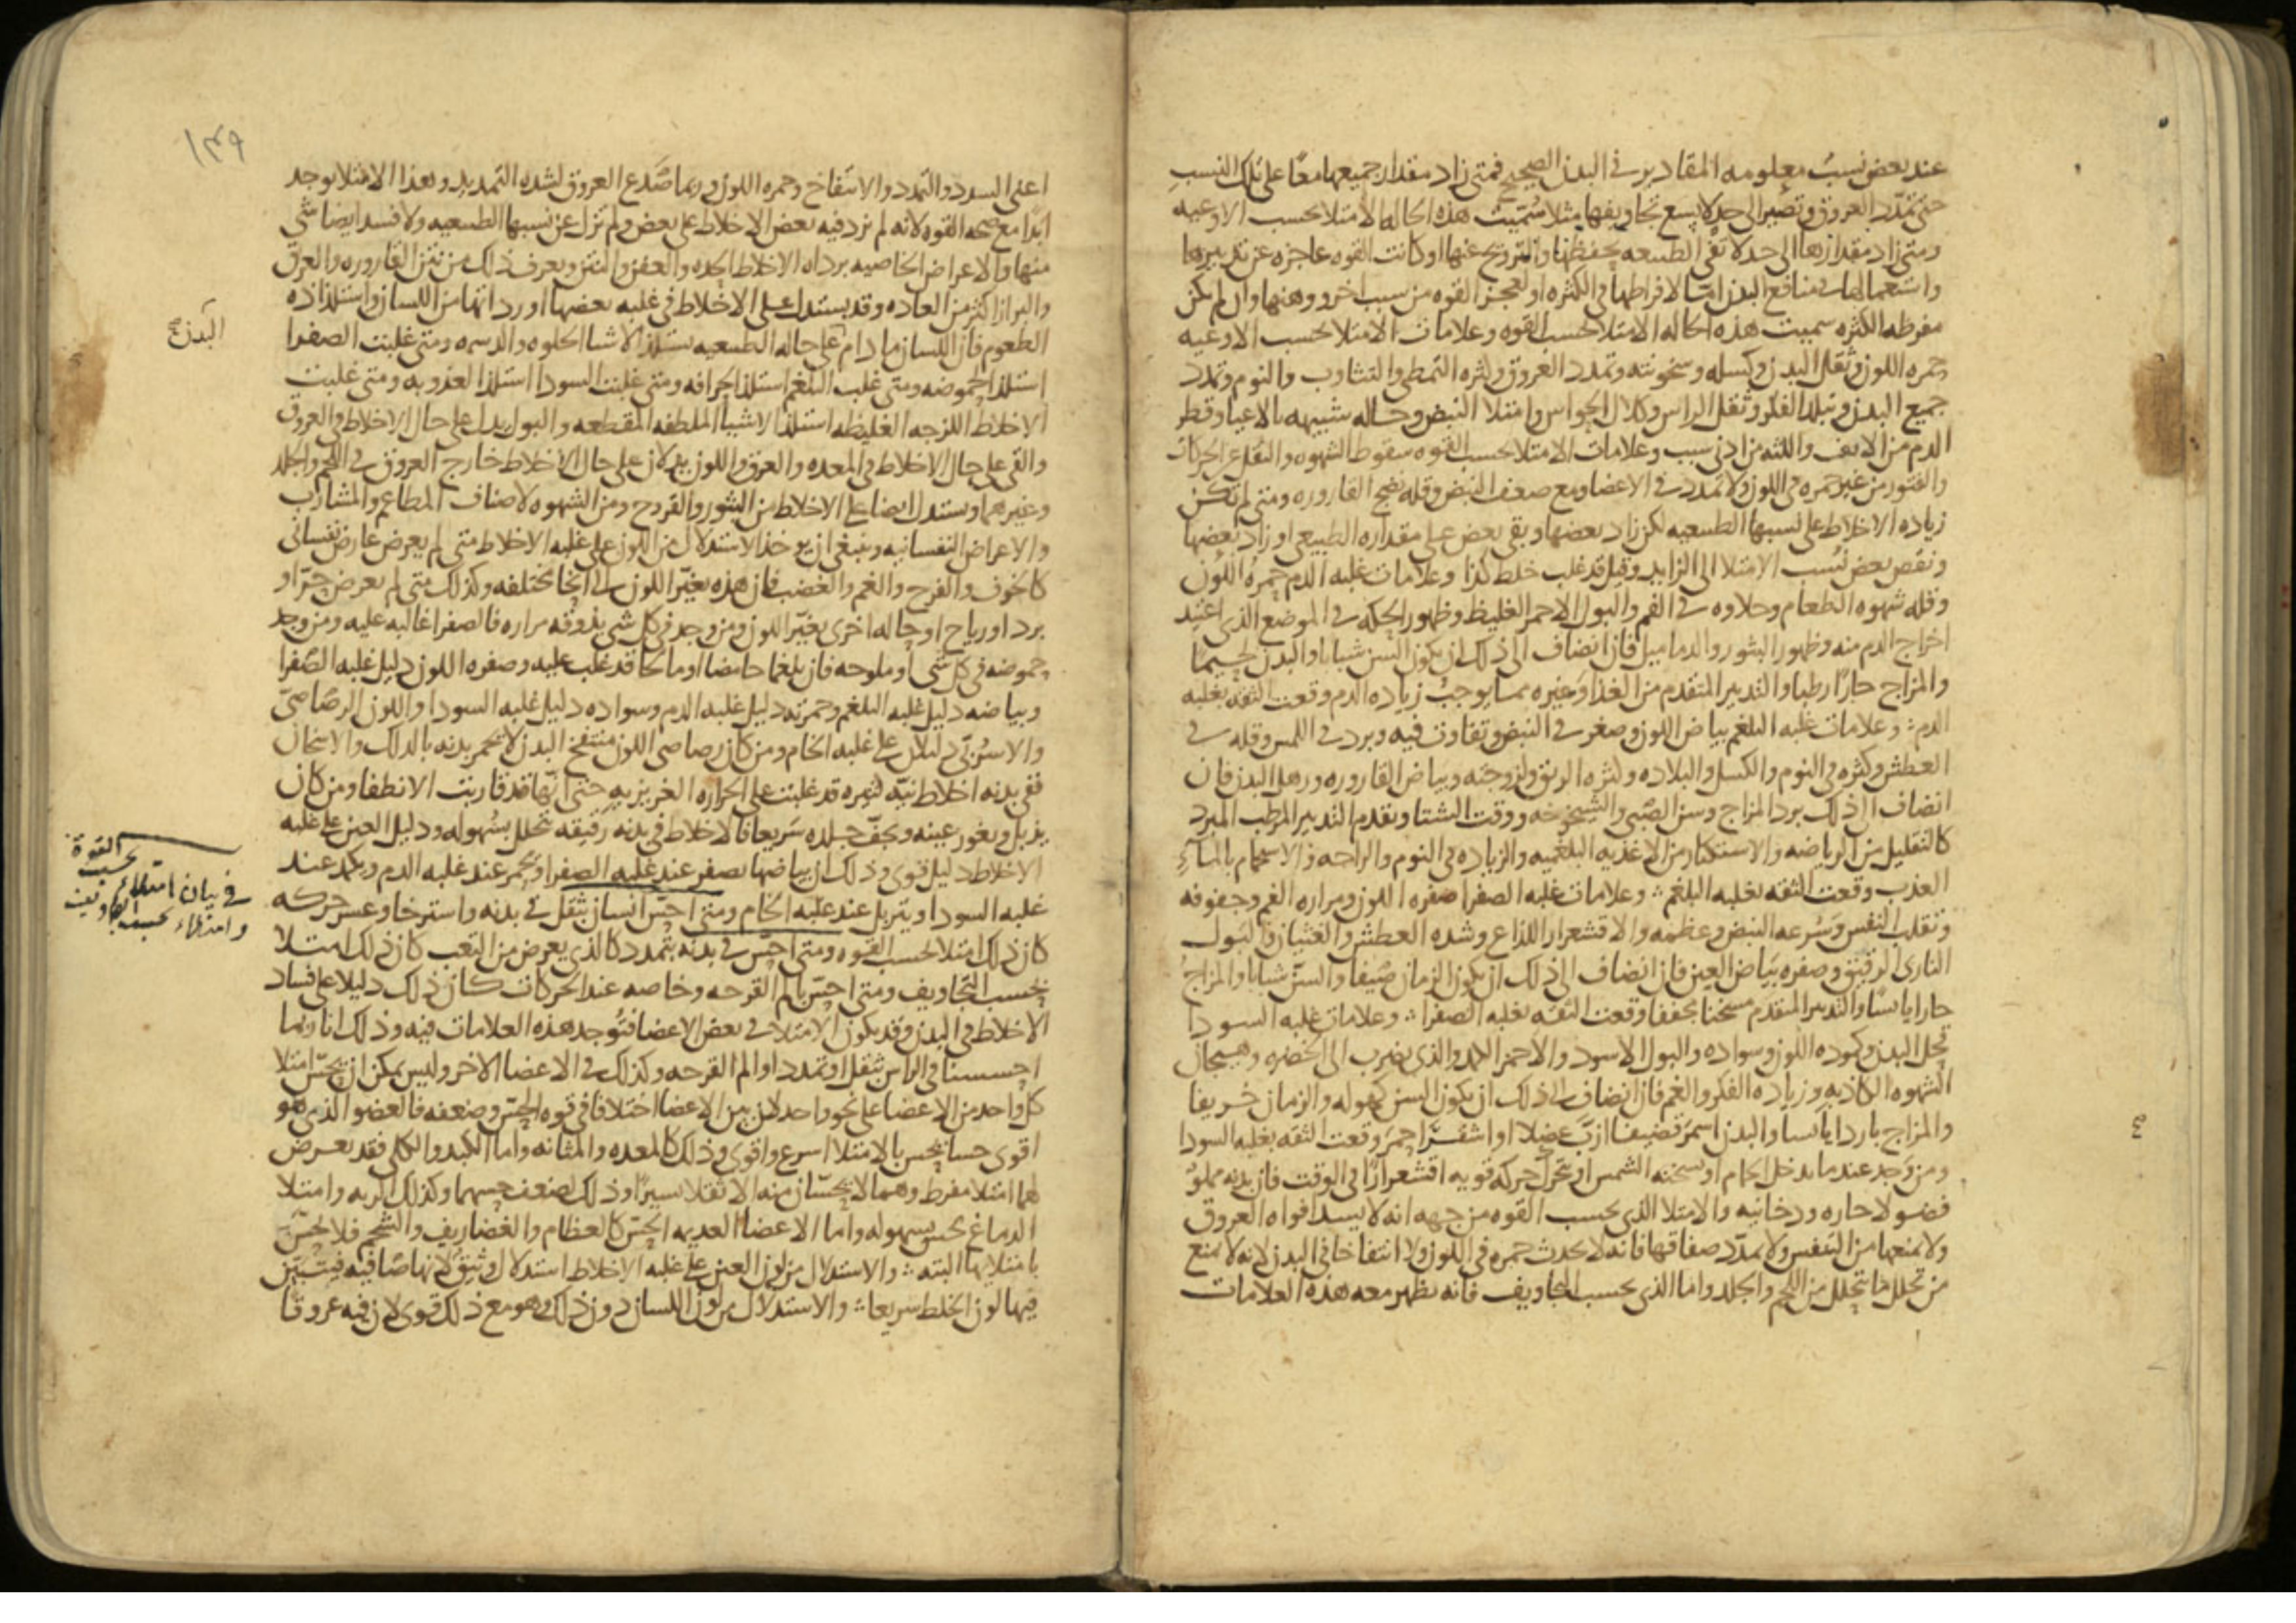 عند بعض نسب معلومه المقادير في البدن الصحيح فمتى زاد مقدار جميعها معا على تلك النسب
حتى تمدد العروق وتصير الى حد لا يسع تجاويفها مثلا سميت هذه الحاله الامتلا بحسب الاوعيه
ومتى زاد مقدارها الى حد لا تفي الطبيعه بحفظها والترويح عنها او كانت القوه عاجزه عن تدبيرها
واستعمالها في منافع البدن اما لافراطها في الكثره او لعجز القوه من سبب اخر ووهنها وان لم تكن
مفرطه الكثره سميت هذه الحاله الامتلا بحسب القوه وعلامات الامتلا بحسب الاوعيه
حمره اللون وثقل البدن وكسله وسخونته وتمدد العروق وكثره التمطي والتثاوب والنوم وتمدد
جميع البدن وتبلد الفكر وثقل الراس وكلال الحواس وامتلا النبض وحاله شبيهه بالاعيا وقطر
الدم من الانف واللثه من ادنى سبب وعلامات الامتلا بحسب القوه سقوط الشهوه والثقل عن الحركات
والفتور من غير حمره في اللون ولا تمدد في الاعضا ومع ضعف النبض وقله نضج القاروره ومتى لم تكن
زياده الاخلاط على نسبها الطبيعيه لكن زاد بعضها وبقي بعض على مقداره الطبيعي او زاد بعضها
ونقص بعض نسب الامتلا الى الزايد وقيل قد غلب خلط كذا وعلامات غلبه الدم حمره اللون
وقله شهوه الطعام وحلاوه في الفم والبول الاحمر الغليظ وظهور الحكه في الموضع الذي اعتيد
اخراج الدم منه وظهور البثور والدماميل فان انضاف الى ذلك ان يكون السن شبابا والبدن لحيما
والمزاج حارا رطبا والتدبير المتقدم من الغذا وغيره مما يوجب زياده الدم وقعت الثقه بغلبه
الدم ؞ وعلامات غلبه البلغم بياض اللون وصغر في النبض وتفاوت فيه وبرد في اللمس وقله في
العطش وكثره في النوم والكسل والبلاده وكثره الريق ولزوجته وبياض القاروره ورهل البدن فان
انضاف الى ذلك برد المزاج وسن الصبي والشيخوخه ووقت الشتا وتقدم التدبير المرطب المبرد
كالتقليل من الرياضه والاستكثار من الاغذيه البلغميه والزياده في النوم والراحه والاستحمام بالماء
العذب وقعت الثقه بغلبه البلغم ؞ وعلامات غلبه الصفرا صفره اللون ومراره الفم وجفوفه
وتقلب النفس وسرعه النبض وعظمه والاقشعرار اللذاع وشده العطش والغثيان والبول
الناري الرقيق وصفره بياض العين فان انضاف الى ذلك ان يكون الزمان صيفا والسن شبابا والمزاج
حارا يابسا والتدبير المتقدم مسخنا مجففا وقعت الثقه بغلبه الصفرا ؞ وعلامات غلبه السودا
قحل البدن وكموده اللون وسواده والبول الاسود والاحمر الكمد والذي يضرب الى الخضره وهيجان
الشهوه الكاذبه وزياده الفكر والغم فان انضاف الى ذلك ان يكون السن كهوله والزمان خريفا
والمزاج باردا يابسا والبدن اسمر قضيفا ازب عضلا او اشقر احمر وقعت الثقه بغلبه السودا
ومن وجد عند ما يدخل الحمام او سخنه الشمس او تحرك حركه قويه اقشعرارا في الوقت فان بدنه مملو
فضولا حاره ودخانيه والامتلا الذي بحسب القوه من جهه انه لا يسد افواه العروق
ولا يمنعها من التنفس ولا يمدد صفاقها فانه لا يحدث حمره في اللون ولا انتفاخا في البدن لانه لا يمنع
من تحلل ما يتحلل من اللحم والجلد واما الذي بحسب التجاويف فانه يظهر معه هذه العلامات
١٣٩
اعني السدد والتمدد والانتفاخ وحمره اللون وربما صدع العروق لشده التمديد وهذا الامتلا يوجد
ابدا مع صحه القوه لانه لم تزد فيه بعض الاخلاط على بعض ولم تزل عن نسبها الطبيعيه ولا فسد ايضا شي
منها والاعراض الخاصيه برداه الاخلاط الحده والعفن والنتن ويعرف ذلك من نتن القاروره والعرق
والبراز اكثر من العاده وقد يستدل على الاخلاط في غلبه بعضها او رداتها من اللسان واستلذاذه
الطعوم فان اللسان ما دام على حاله الطبيعيه يستلذ الاشيا الحلوه والدسمه ومتى غلبت الصفرا
البدن
استلذ الحموضه ومتى غلب البلغم استلذ الحرافه ومتى غلبت السودا استلذ العذوبه ومتى غلبت
الاخلاط اللزجه الغليظه استلذ الاشيا الملطفه المقطعه والبول يدل على حال الاخلاط في العروق
والقي على حال الاخلاط في المعده والعرق واللون يدلان على حال الاخلاط خارج العروق في اللحم والجلد
وغيرهما ويستدل ايضا على الاخلاط من البثور والقروح ومن الشهوه لاصناف المطاعم والمشارب
والاعراض النفسانيه وينبغي ان يوخذ الاستدلال من اللون على غلبه الاخلاط متى لم يعرض عارض نفساني
كالخوف والفرح والغم والغضب فان هذه يغير اللون الى انحا مختلفه وكذلك متى لم يعرض حر او
برد او رياح او حاله اخرى يغير اللون ومن وجد في كل شي يذوقه مراره فالصفرا غالبه عليه ومن وجد
حموضه في كل شي او ملوحه فان بلغما حامضا او مالحا قد غلب عليه وصفره اللون دليل غلبه الصفرا
وبياضه دليل غلبه البلغم وحمرته دليل غلبه الدم وسواده دليل غلبه السودا واللون الرصاصي
والاسربي دليلان على غلبه الخام ومن كان رصاصي اللون منتفخ البدن لا يحمر بدنه بالدلك والاسخان
ففي بدنه اخلاط نيه كثيره قد غلبت على الحراره الغريزيه حتى انها قد قاربت الانطفا ومن كان
يذبل وتغور عينه ويجف جلده سريعا فالاخلاط في بدنه رقيقه تتحلل بسهوله ودليل العين على غلبه
الاخلاط دليل قوي وذلك ان بياضها يصفر عند غلبه الصفرا ويحمر عند غلبه الدم ويكمد عند
في بيان امتلاء بحسب القوة
وامتلاء بحسب التجاويف
غلبه السودا ويتربل عند غلبه الخام ومتى احس انسان بثقل في بدنه واسترخا وعسر حركه
كان ذلك امتلا بحسب القوه ومتى احس في بدنه بتمدد كالذي يعرض من التعب كان ذلك امتلا
بحسب التجاويف ومتى احس بالم القرحه وخاصه عند الحركات كان ذلك دليلا على فساد
الاخلاط في البدن وقد يكون الامتلا في بعض الاعضا فتوجد هذه العلامات فيه وذلك انا ربما
احسسنا في الراس بثقل او تمدد او الم القرحه وكذلك في الاعضا الاخر وليس يمكن ان يحس امتلا
كل واحد من الاعضا على نحو واحد لان بين الاعضا اختلافا في قوه الحس وضعفه فالعضو الذي هو
اقوى حسا يحس بالامتلا اسرع واقوى وذلك كالمعده والمثانه واما الكبد والكلى فقد يعرض
لهما امتلا مفرط وهما لا يحسان منه الا ثقلا يسيرا وذلك لضعف حسهما وكذلك الريه وامتلا
الدماغ يحس بسهوله واما الاعضا العديمه الحس كالعظام والغضاريف والشحم فلا يحس
بامتلايها البته ؞ والاستدلال من لون العين على غلبه الاخلاط استدلال وثيق لانها صافيه فيتبين
فيها لون الخلط سريعا ؞ والاستدلال من لون اللسان دون ذلك وهو مع ذلك قوي لان فيه عروقا